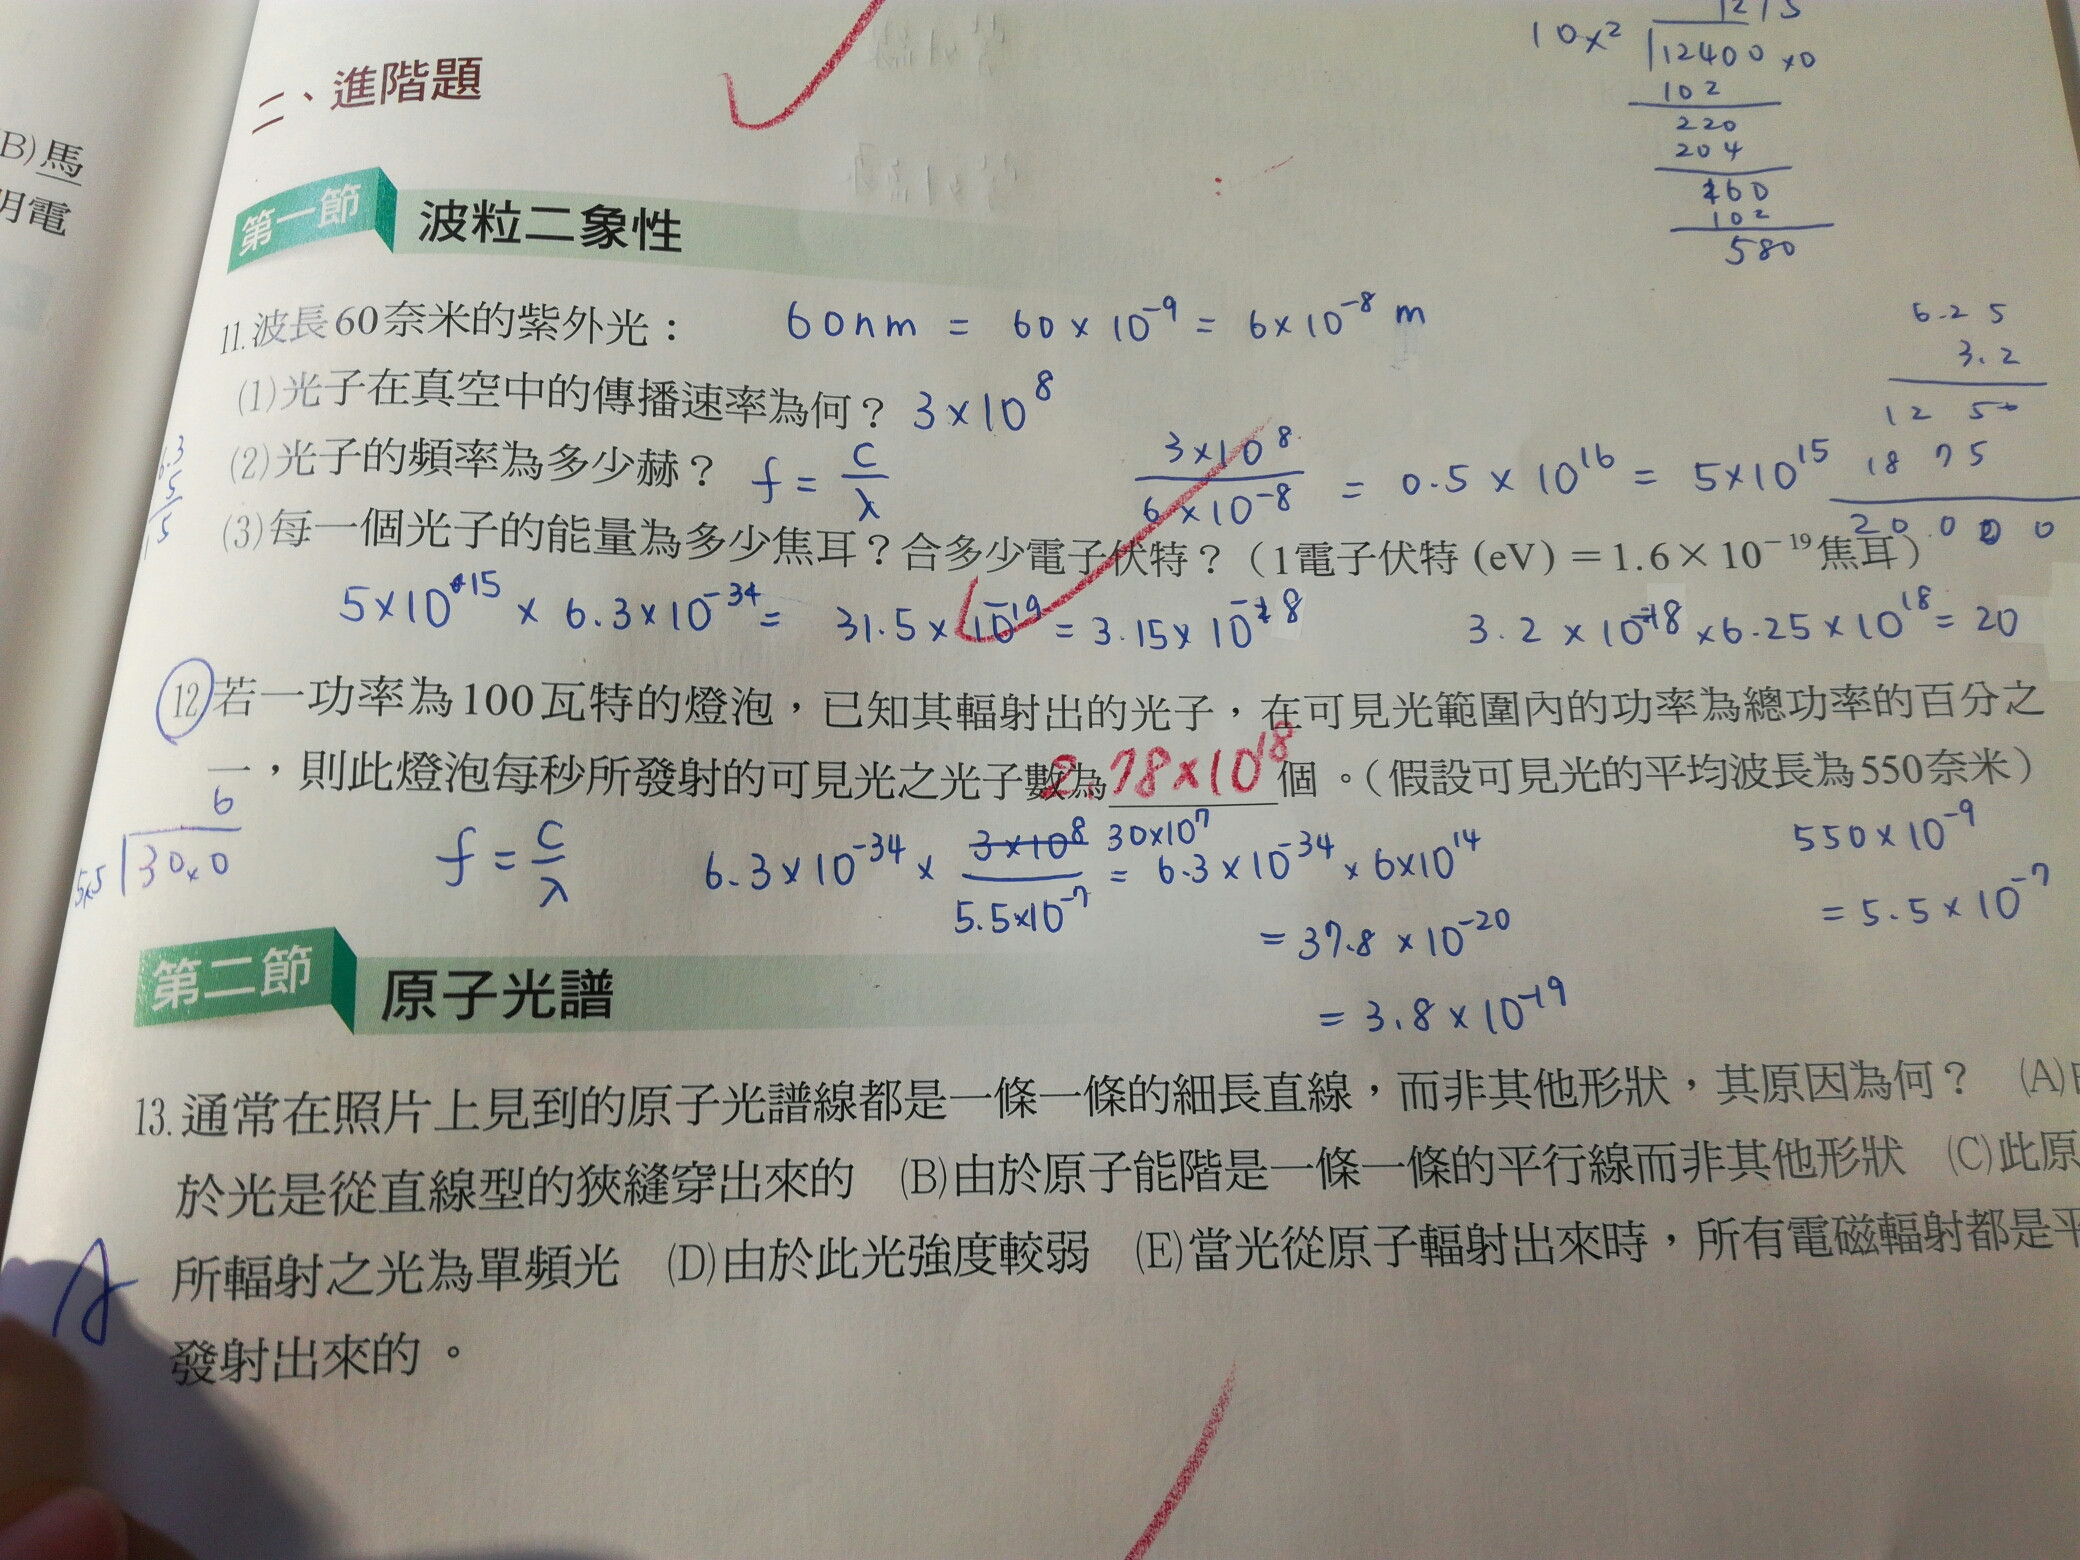 二、進階題
1215
10x2
12400x0
102
220
204
160
102
580
B)馬
明電
第一節 波粒二象性
11.波長60奈米的紫外光： 60nm = 60×10⁻⁹ = 6×10⁻⁸ m
(1)光子在真空中的傳播速率為何？ 3×10⁸
(2)光子的頻率為多少赫？ f = c/λ 3×10⁸/6×10⁻⁸ = 0.5×10¹⁶ = 5×10¹⁵
6.25
3.2
1250
1875
20.000
6.3
5
(3)每一個光子的能量為多少焦耳？合多少電子伏特？（1電子伏特 (eV)＝1.6×10⁻¹⁹焦耳）
5×10¹⁵ × 6.3×10⁻³⁴ = 31.5×10⁻¹⁹ = 3.15×10⁻¹⁸ 3.2×10⁻¹⁸×6.25×10¹⁸ = 20
12若一功率為100瓦特的燈泡，已知其輻射出的光子，在可見光範圍內的功率為總功率的百分之
一，則此燈泡每秒所發射的可見光之光子數為2.78×10¹⁸個。（假設可見光的平均波長為550奈米）
6
30x0
f = c/λ 6.3×10⁻³⁴ × 3×10⁸ 30×10⁷/5.5×10⁻⁷ = 6.3×10⁻³⁴ × 6×10¹⁴ 550×10⁻⁹
= 37.8×10⁻²⁰ = 5.5×10⁻⁷
= 3.8×10⁻¹⁹
第二節 原子光譜
13.通常在照片上見到的原子光譜線都是一條一條的細長直線，而非其他形狀，其原因為何？ (A)
於光是從直線型的狹縫穿出來的 (B)由於原子能階是一條一條的平行線而非其他形狀 (C)此原
所輻射之光為單頻光 (D)由於此光強度較弱 (E)當光從原子輻射出來時，所有電磁輻射都是平
發射出來的。
A